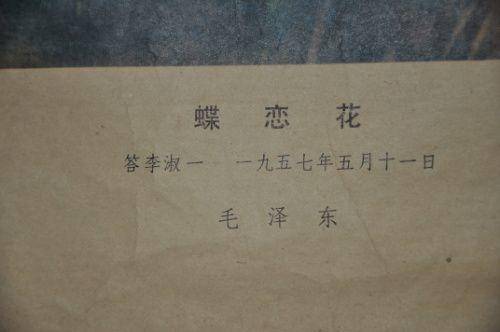 蝶 恋 花
答李淑一 一九五七年五月十一日
毛 泽 东